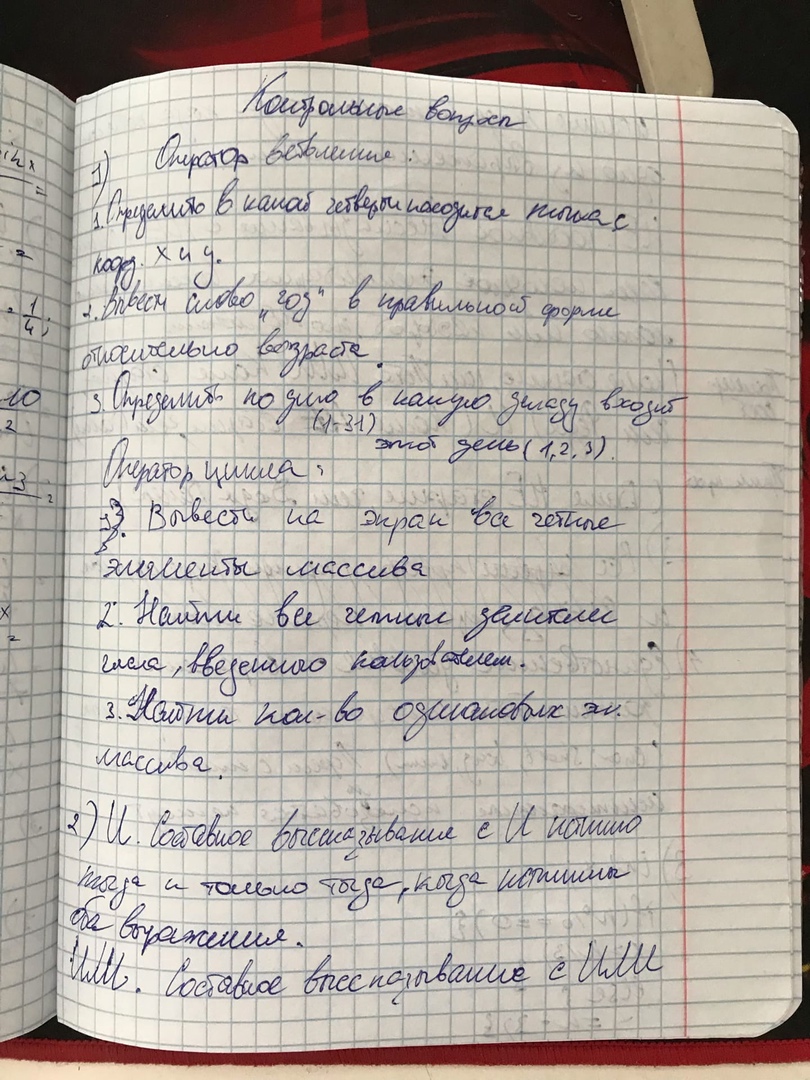 Контрольные вопросы
1) Оператор ветвления:
1. Определить в какой четверти находится точка с
коорд. x и y.
2. Вывести слово "год" в правильной форме
относительно возраста.
3. Определить по дню в какую декаду входит
(1-31)
этот день (1,2,3).
Оператор цикла:
1. Вывести на экран все четные
элементы массива
2. Найти все четные делители
числа, введенного пользователем.
3. Найти кол-во одинаковых эл.
массива.
2) И. Составное высссказывание с И истинно
тогда и только тогда, когда истинны
оба выражения.
ИЛИ. Составное высссказывание с ИЛИ
sin x
=
=
= 1/4;
10
2
3
=
x
=